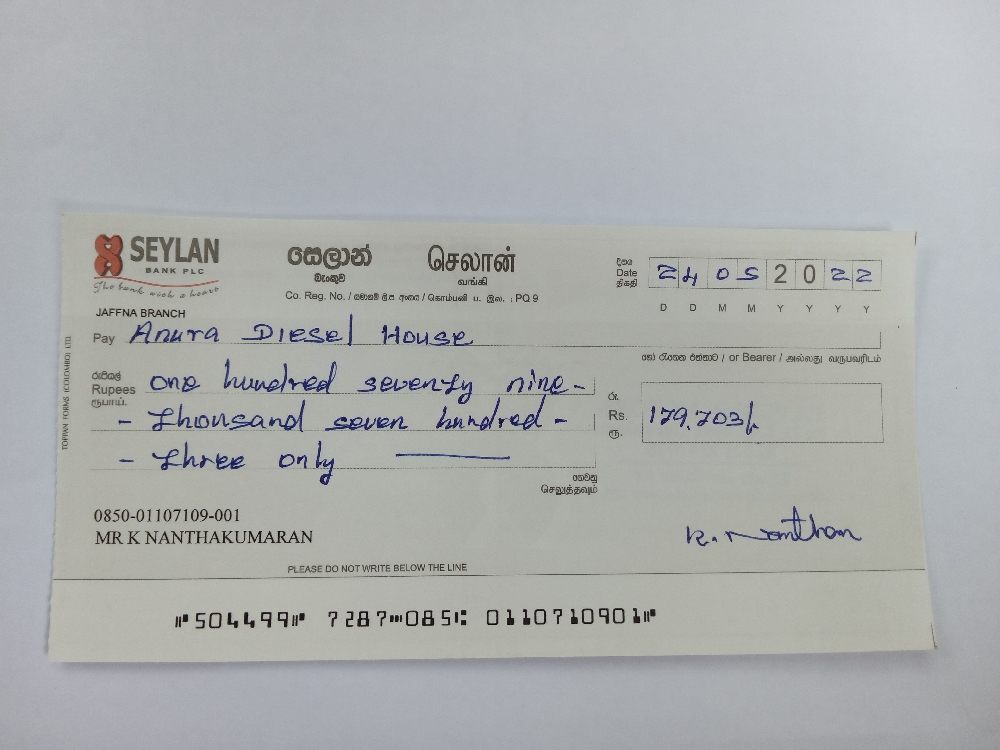 SEYLAN
BANK PLC
The bank with a heart
සෙලාන් செலான்
බැංකුව வங்கி
Co. Reg. No. / සමාගම් ලි.ප. අංකය / கொம்பனி ப. இல. : PQ 9
දිනය
Date 24 05 20 22
திகதி
D D M M Y Y Y Y
JAFFNA BRANCH
Pay Anura Diesel House
හෝ රැගෙන එන්නාට / or Bearer / அல்லது வருபவரிடம்
රුපියල්
Rupees one hundred seventy nine-
ரூபாய்.
- thousand seven hundred -
- three only
රු.
Rs. 179,703/-
ரூ.
ගෙවනු
செலுத்தவும்
0850-01107109-001
MR K NANTHAKUMARAN
K. Nanthan
PLEASE DO NOT WRITE BELOW THE LINE
⑈504499⑈ 7287⑉085⑆ 0110710901⑈
TOPPAN FORMS (COLOMBO) LTD.